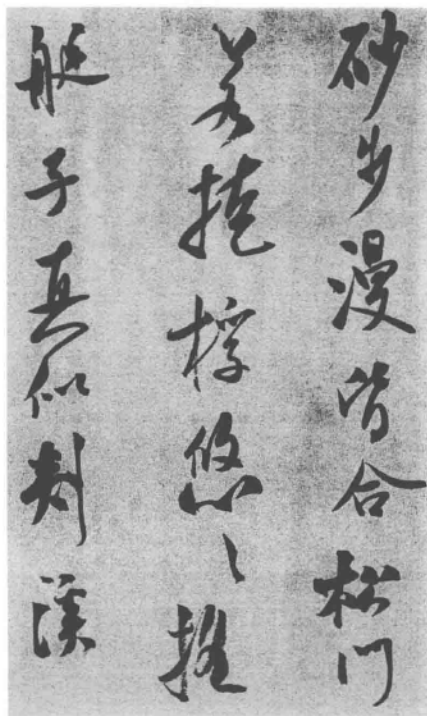 砂步漫皆合松門
若掩桴悠〻搖
艇子真似剡溪